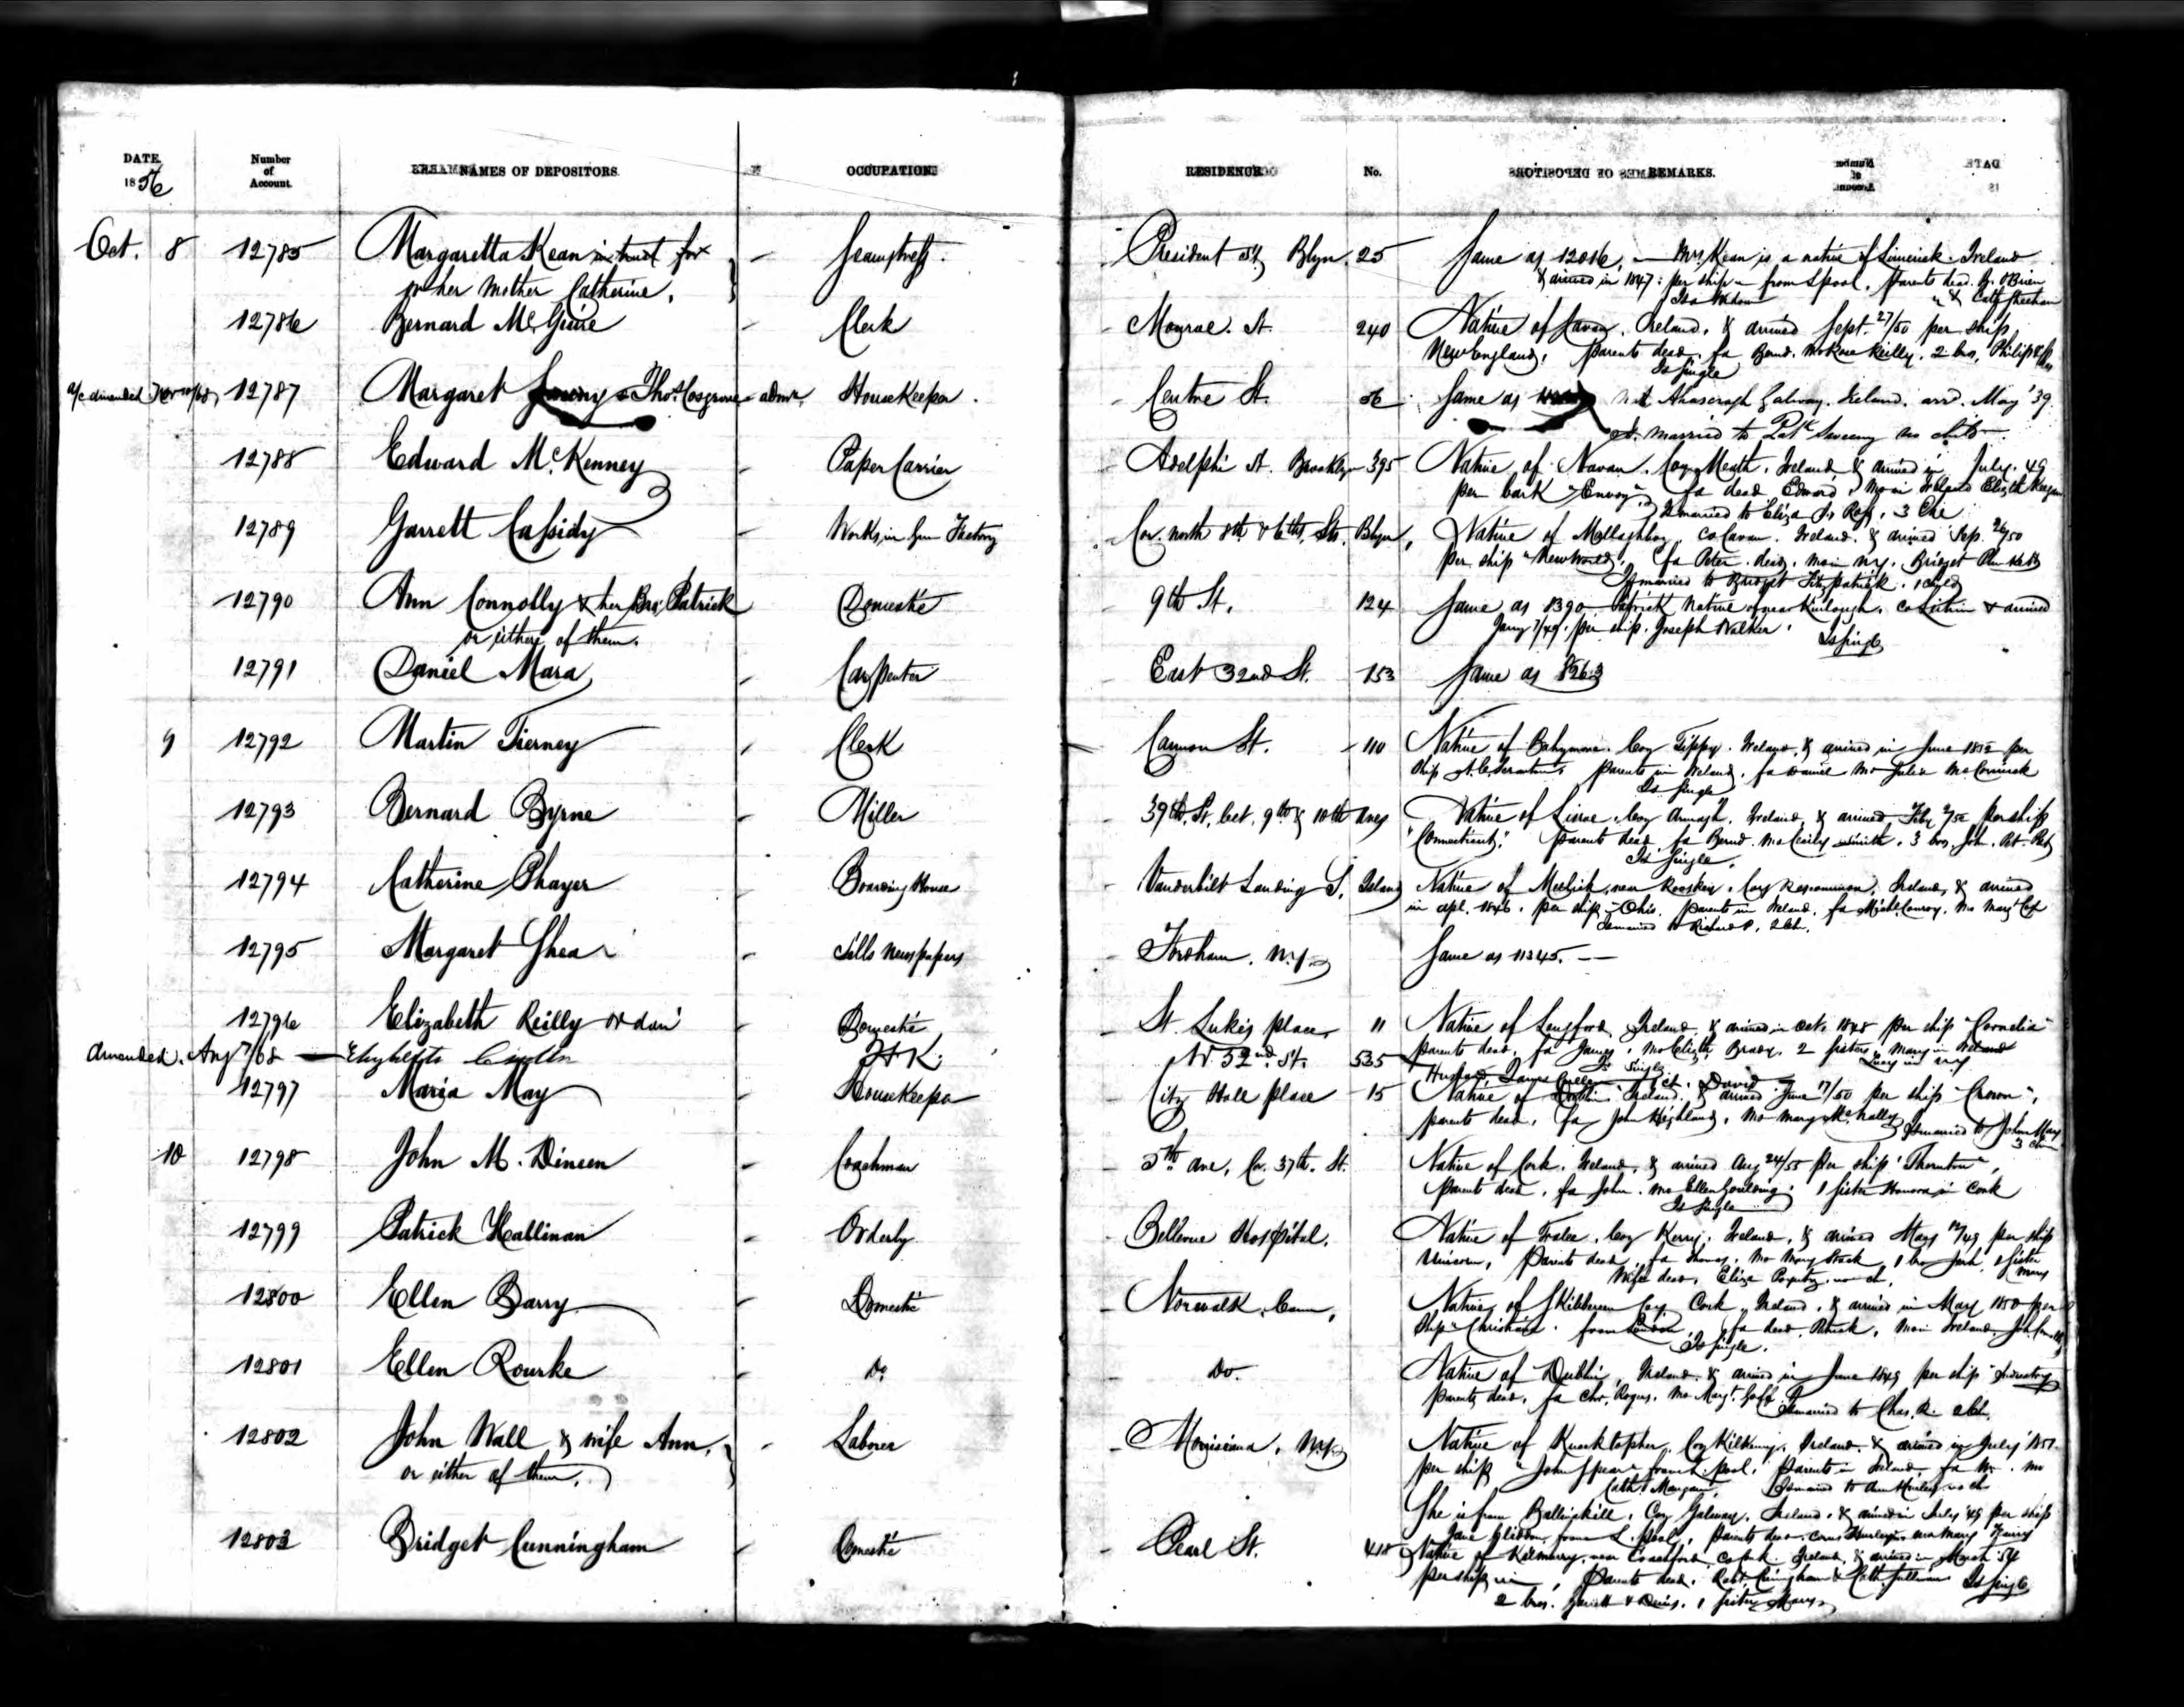 DATE. Number of Account. NAMES OF DEPOSITORS. OCCUPATION RESIDENCE No. REMARKS.
1856
Oct. 8 12785 Margaretta Kean in trust for — Seamstress. President St, Blyn. 25 Same as 12016, — Mrs. Kean is a native of Limerick. Ireland
or her Mother Catherine. & arrived in 1847: per ship — from Lpool. Parents dead.
Is a Widow
12786 Bernard McGuire Clerk Monroe. St. 240 Native of Cavan. Ireland, & arrived Sept. 27/50 per ship
New England, parents dead, fa Bernd. mo Rose Reilly. 2 bros, Philip
Is Single
a/c amended 12787 Margaret Thos. Cosgrove admr. Housekeeper. Centre St. 56 Same as Nat Ahascragh Galway. Ireland. arrd. May '39
Is married to Patk Sweeny no child
12788 Edward McKenney Paper Carrier Adelphi St. Brooklyn 395 Native of Navan. Coy Meath, Ireland & arrived in July. 49
per bark "Envoy", fa dead Edward, Mo in Ireland Elizth Keegan
Is married to Eliza 3 Che
12789 Garrett Cassidy Works in Gun Factory Cor. north 8th & 6th Sts. Blyn, Native of Mullaghboy Co Cavan. Ireland. & arrived Sep. 26/50
per ship "New World", fa Peter dead, mo in N.Y. Bridget
Is married to Bridget Fitzpatrick. 1 child
12790 Ann Connolly & her Bro. Patrick Domestic 9th St. 124 Same as 8390 Patrick native of near Kinlough, Co Leitrim & arrived
or either of them. Jany 7/49, per ship. Joseph Walker.
Is Single
12791 Daniel Mara Carpenter East 32nd St. 153 Same as 8263
9 12792 Martin Tierney Clerk Cannon St. 110 Native of Coy Tippy. Ireland, & arrived in June 1852 per
ship parents in Ireland, fa Daniel Mo Julia McCormick
Is Single
12793 Bernard Byrne Miller 39th St. bet. 9th & 10th Aves Native of Lisroe, Coy Armagh, Ireland, & arrived Feby per ship
"Connecticut," Parents dead fa Bernd. Mo Cicily Smith. 3 bros, John,
Is Single
12794 Catherine Thayer Boarding House Vanderbilt Landing S. Island Native of Meelick, near Rooskey, Coy Roscommon, Ireland, & arrived
in Apl. 1846. per ship Ohio. Parents in Ireland. fa Michl. Conroy, Mo Margt
Is married to Richard P. 2 Ch.
12795 Margaret Shea Sells Newspapers Fordham. N.Y. Same as 11345. —
12796 Elizabeth Reilly Domestic St. Luke's place 11 Native of Longford Ireland, & arrived in Oct. 1848 per ship "Cornelia"
parents dead, fa James, mo Elizth Brady, 2 sisters, Mary in Ireland
amended. Aug 7/68 — H K. W. 52nd St. 535 Is Single
Husband James 1 ch. David
12797 Maria May Housekeeper City Hall place 15 Native of Dublin Ireland. & arrived June 17/50 per ship "Crown",
parents dead, fa John Highland, Mo Mary McNally Is married to John May
3 Chn
10 12798 John M. Dineen Coachman 5th Ave, Cor. 37th. St. Native of Cork. Ireland, & arrived Aug 24/55 per ship "Thornton",
parents dead, fa John. mo Ellen Goulding. 1 sister Honora in Cork
Is Single
12799 Patrick Hallinan Orderly Bellevue Hospital. Native of Tralee, Coy Kerry, Ireland, & arrived May per ship
Unicorn, Parents dead, fa Thomas, Mo Mary Stack 1 bro Jerh, 1 sister
Mary
Wife dead, Eliza no ch.
12800 Ellen Barry Domestic Norwalk, Conn, Native of Skibbereen Coy Cork, Ireland, & arrived in May 1850 per
ship "Christiana" from London, fa dead, Patrick, Mo in Ireland
Is Single.
12801 Ellen Rourke Do. Do. Native of Dublin Ireland. & arrived in June 1849 per ship Industry
parents dead, fa Chr. Rogers, Mo Margt. Goff. Is married to Chas. R. 2 Ch.
12802 John Wall & wife Ann, Laborer Morrisiana, N.Y. Native of Knocktopher, Coy Kilkenny, Ireland. & arrived in July 1851.
or either of them. per ship "John Spear" from L.pool, Parents in Ireland, fa Wm. mo
Cath. Mangan, Is married to Ann Hurley no ch
She is from Ballinakill, Coy Galway, Ireland, & arrived in July '49 per ship
Jane Glidden from L.pool, parents dead.
12803 Bridget Cunningham Domestic Pearl St. 418 Native of Kilmurry, near Coachford, Co Cork. Ireland, & arrived in March 54
per ship — , Parents dead, Robt. Cuningham & Cath. Sullivan Is Single
2 bros. Garrett & Denis, 1 sister Mary